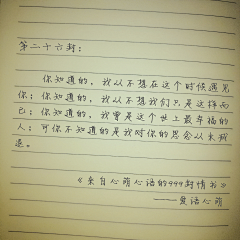 第二十六封：
你知道的，我从不想在这个时候遇见
你；你知道的，我从不想我们只是这样而
已；你知道的，我曾是这个世上最幸福的
人；可你不知道的是我对你的思念从未稍
逊。
《来自心萌心语的999封情书》
——爱语心萌